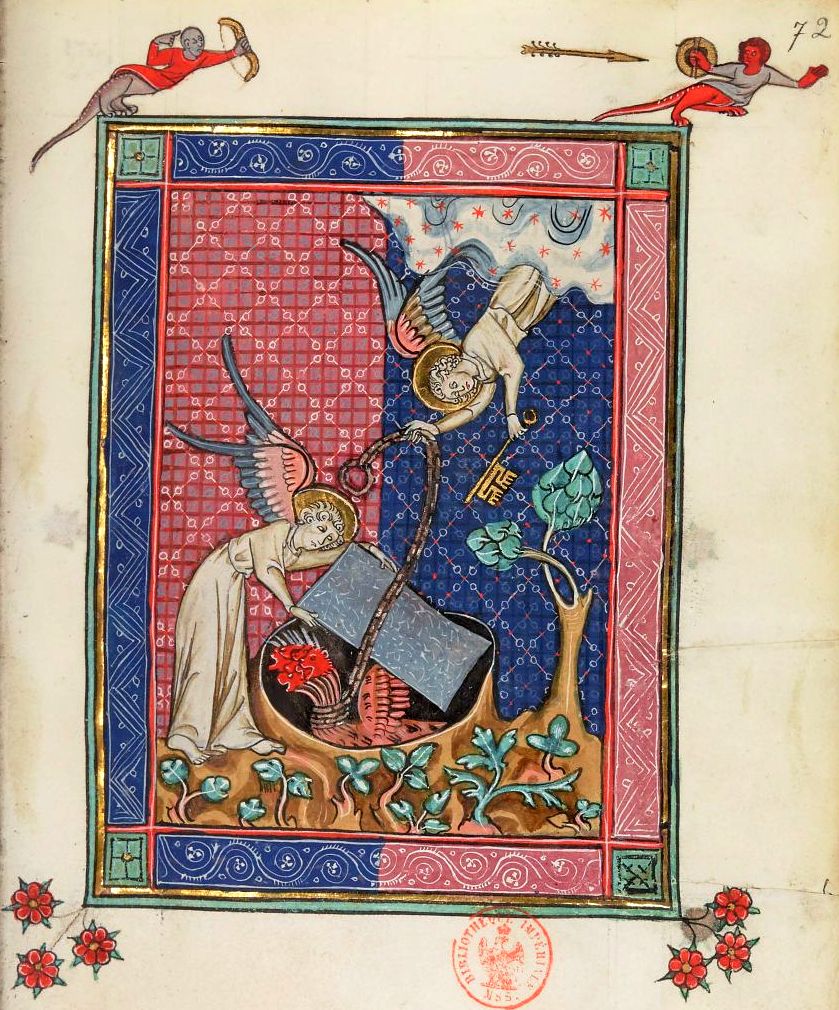 72
BIBLIOTHÈQUE IMPÉRIALE
MSS.